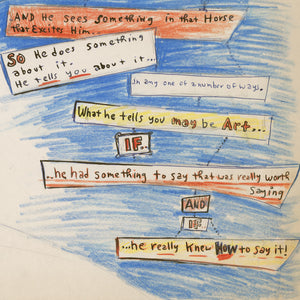 AND He sees something in that Horse
that Excites Him...
SO He does something
about it.
He tells you about it...
In any one of a number of ways.
What he tells you may be Art...
IF..
..he had something to say that was really worth
saying
AND
IF..
...he really knew HOW to say it!